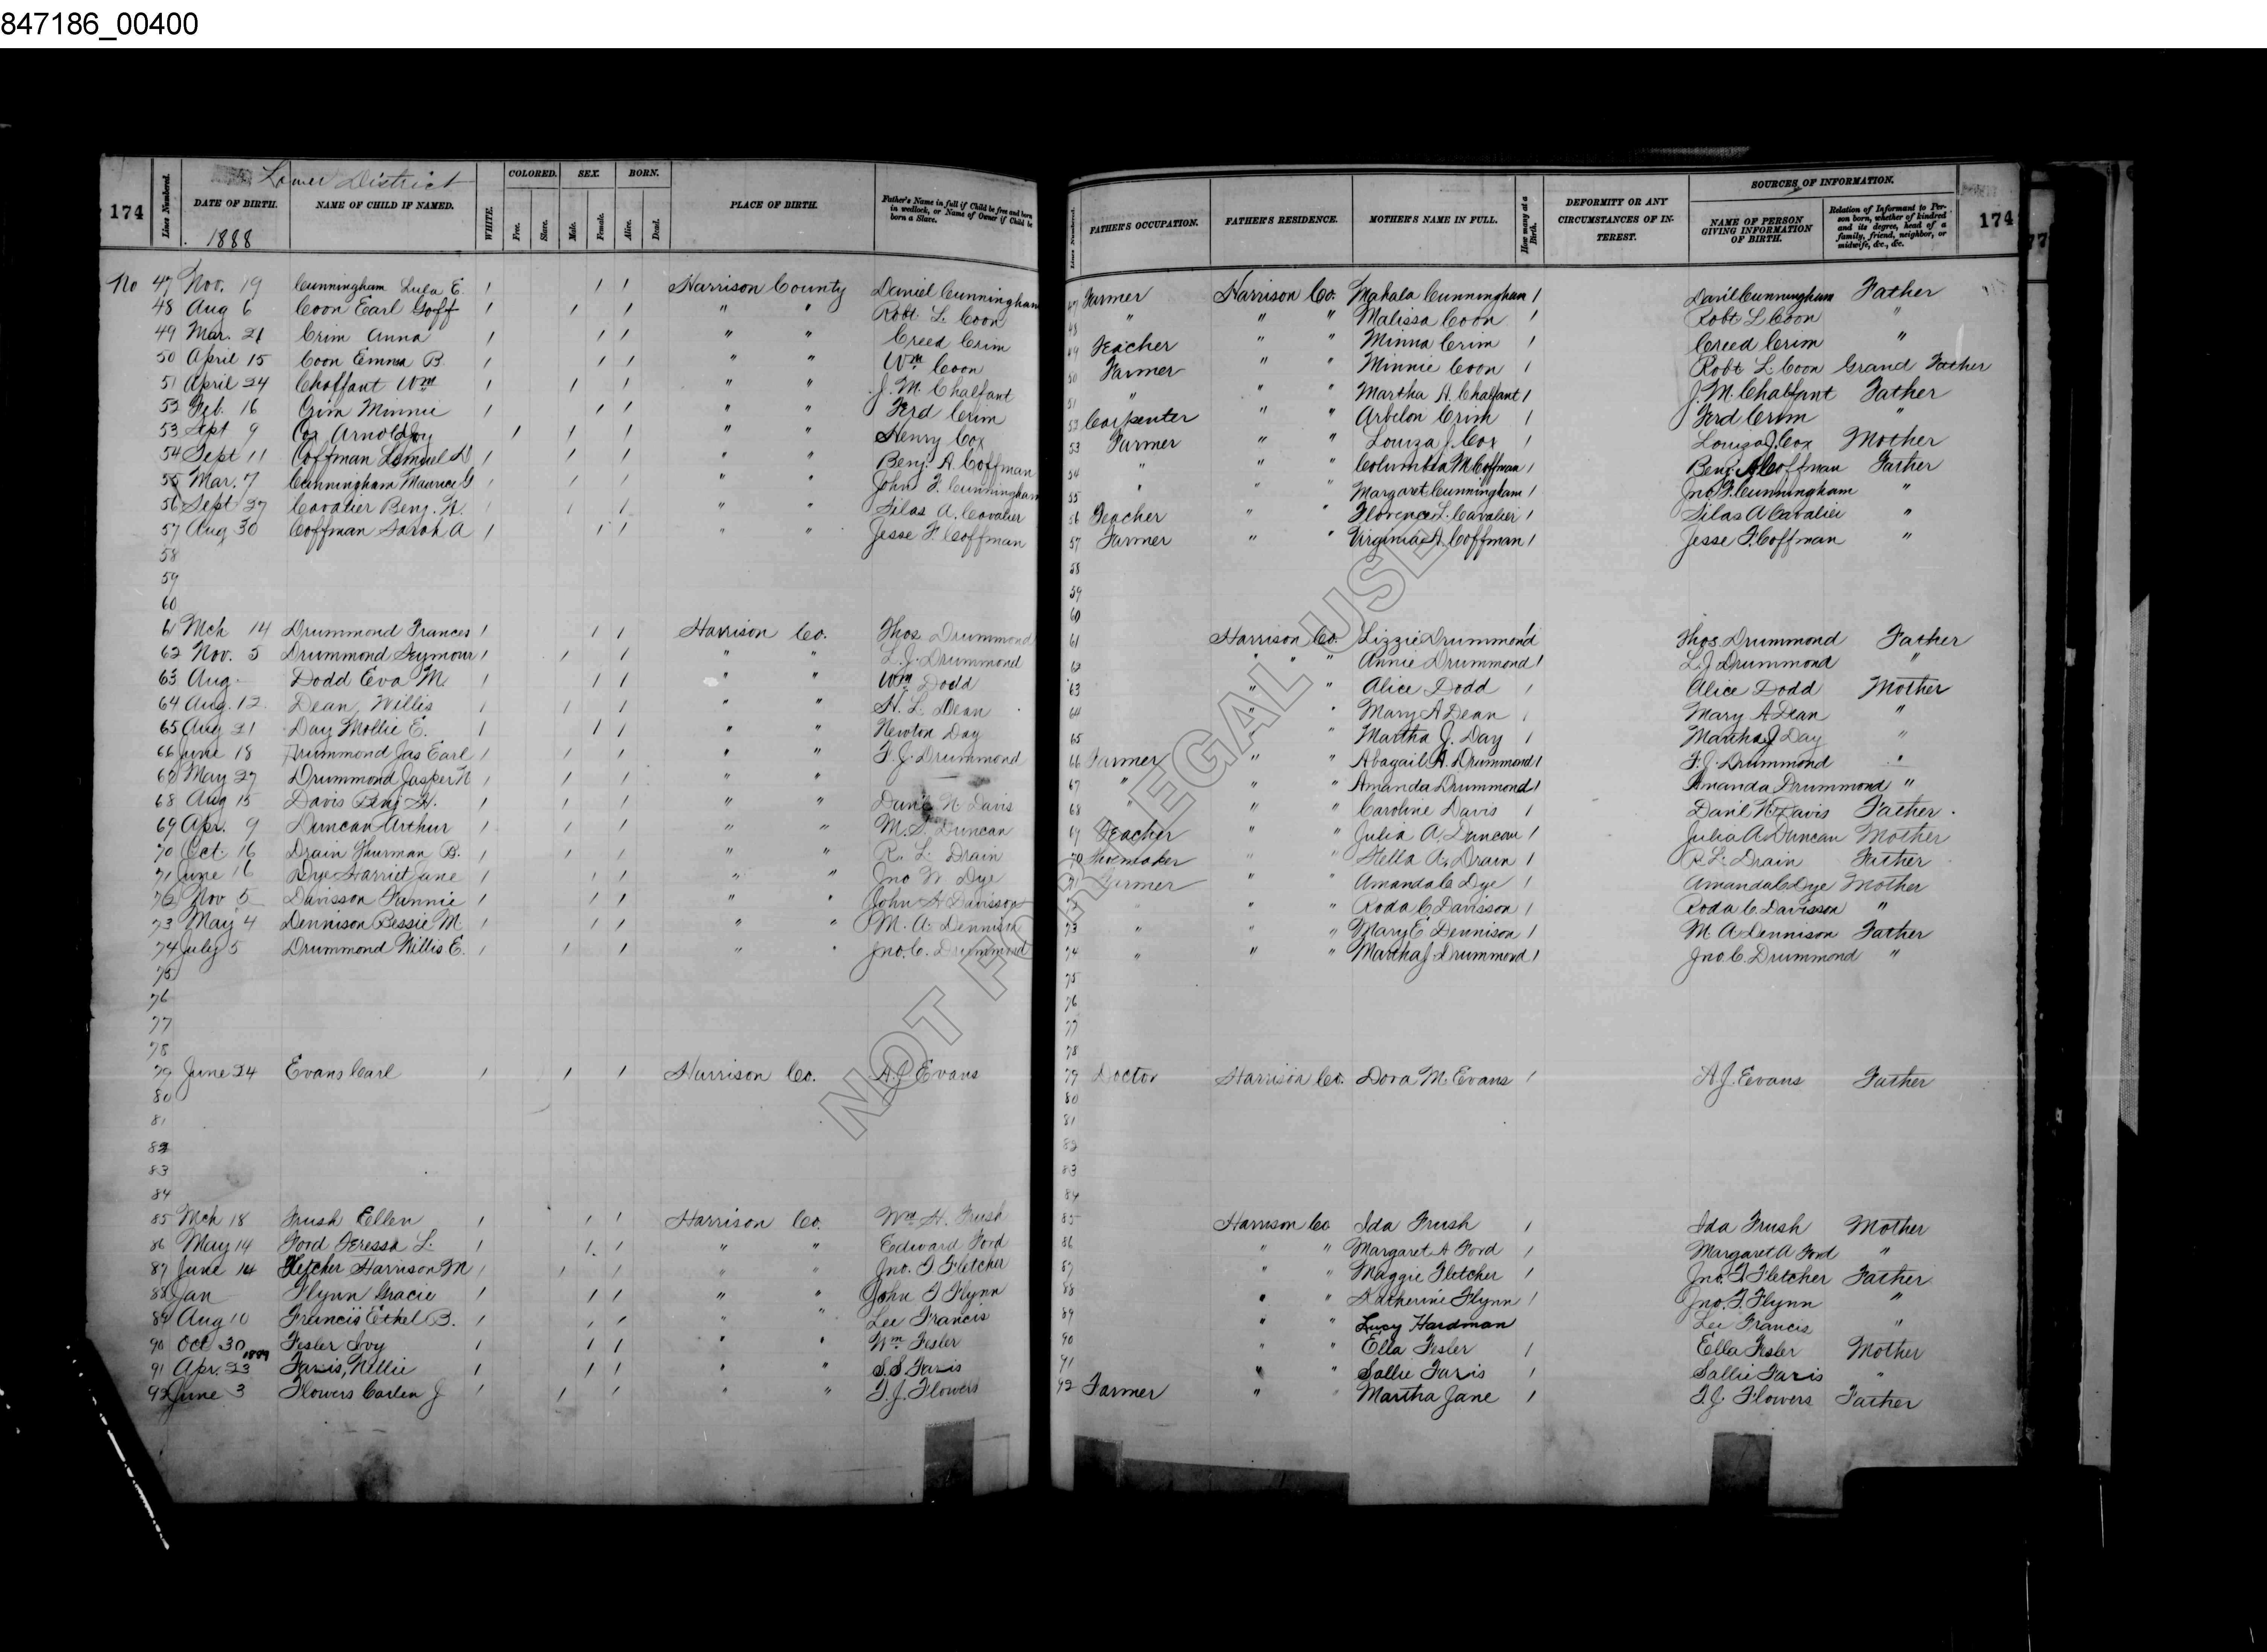 847186_00400
Lower District
174
Lines Numbered.
DATE OF BIRTH.
1888
NAME OF CHILD IF NAMED.
WHITE.
COLORED.
Free.
Slave.
SEX.
Male.
Female.
BORN.
Alive.
Dead.
PLACE OF BIRTH.
Father's Name in full if Child be free and born in wedlock, or Name of Owner if Child be born a Slave.
Lines Numbered.
FATHER'S OCCUPATION.
FATHER'S RESIDENCE.
MOTHER'S NAME IN FULL.
How many at a Birth.
DEFORMITY OR ANY CIRCUMSTANCES OF INTEREST.
SOURCES OF INFORMATION.
NAME OF PERSON GIVING INFORMATION OF BIRTH.
Relation of Informant to Person born, whether of kindred and its degree, head of a family, friend, neighbor, or midwife, &c., &c.
174
No 47 Nov. 19 Cunningham Lula E. 1 1 1 Harrison County Daniel Cunningham 47 Farmer Harrison Co. Mahala Cunningham 1 Dan'l Cunningham Father
48 Aug 6 Coon Earl Goff 1 1 1 " " Robt. L. Coon 48 " " " Malissa Coon 1 Robt L Coon "
49 Mar. 21 Crim Anna 1 1 1 " " Creed Crim 49 Teacher " " Minna Crim 1 Creed Crim "
50 April 15 Coon Emma B. 1 1 1 " " Wm Coon 50 Farmer " " Minnie Coon 1 Robt L. Coon Grand Father
51 April 24 Chalfant Wm 1 1 1 " " J. M. Chalfant 51 " " " Martha A. Chalfant 1 J. M. Chalfant Father
52 Feb. 16 Crim Minnie 1 1 1 " " Ferd Crim 52 Carpenter " " Arbelon Crim 1 Ferd Crim "
53 Sept 9 Cox Arnold Joy 1 1 1 " " Henry Cox 53 Farmer " " Louiza J. Cox 1 Louiza J. Cox Mother
54 Sept 11 Coffman Lemuel D 1 1 1 " " Benj. A. Coffman 54 " " " Columbia M. Coffman 1 Benj. A Coffman Father
55 Mar. 7 Cunningham Maurice G 1 1 1 " " John F. Cunningham 55 " " " Margaret Cunningham 1 Jno. F. Cunningham "
56 Sept 27 Cavalier Benj. H. 1 1 1 " " Silas A. Cavalier 56 Teacher " " Florence L. Cavalier 1 Silas A Cavalier "
57 Aug 30 Coffman Sarah A 1 1 1 " " Jesse F. Coffman 57 Farmer " " Virginia A. Coffman 1 Jesse F. Coffman "
58 58
59 59
60 60
61 Mch 14 Drummond Frances 1 1 1 Harrison Co. Thos Drummond 61 Harrison Co. Lizzie Drummond 1 Thos. Drummond Father
62 Nov. 5 Drummond Seymour 1 1 1 " " L. J. Drummond 62 " " " Annie Drummond 1 L. J. Drummond "
63 Aug. Dodd Eva M. 1 1 1 " " Wm Dodd 63 " " Alice Dodd 1 Alice Dodd Mother
64 Aug. 12 Dean, Willis 1 1 1 " " H. L. Dean 64 " " Mary A Dean 1 Mary A Dean "
65 Aug 21 Day Mollie E. 1 1 1 " " Newton Day 65 " " Martha J. Day 1 Martha J Day "
66 June 18 Drummond Jas Earl 1 1 1 " " F. J. Drummond 66 Farmer " " Abagail A. Drummond 1 F. J. Drummond "
68 May 27 Drummond Jasper N 1 1 1 " " 67 " " " Amanda Drummond 1 Amanda Drummond "
68 Aug 15 Davis Benj. H. 1 1 1 " " Dan'l N. Davis 68 " " " Caroline Davis 1 Danil N. Davis Father.
69 Apr. 9 Duncan Arthur 1 1 1 " " M. S. Duncan 69 Teacher " " Julia A. Duncan 1 Julia A. Duncan Mother
70 Oct. 16 Drain Thurman B. 1 1 1 " " R. L. Drain 70 Shoemaker " " Stella A. Drain 1 R. L. Drain Father
71 June 16 Dye Harriet Jane 1 1 1 " " Jno W Dye 71 Farmer " " Amanda C Dye 1 Amanda C Dye Mother
72 Nov 5 Davisson Fannie 1 1 1 " " John H Davisson " " Roda C Davisson 1 Roda C. Davisson "
73 May 4 Dennison Bessie M 1 1 1 " " M. A. Dennison 73 " " " Mary E Dennison 1 M. A Dennison Father
74 July 5 Drummond Willis E. 1 1 1 " " Jno. C. Drummond 74 " " " Martha J Drummond 1 Jno. C. Drummond "
75 75
76 76
77 77
78 78
79 June 24 Evans Carl 1 1 1 Harrison Co. A. J Evans 79 Doctor Harrison Co. Dora M. Evans 1 A. J. Evans Father
80 80
81 81
82 82
83 83
84 84
85 Mch 18 Frush Ellen 1 1 1 Harrison Co. Wm H. Frush 85 Harrison Co Ida Frush 1 Ida Frush Mother
86 May 14 Ford Teressa L. 1 1 1 " " Edward Ford 86 " " Margaret A Ford 1 Margaret A Ford "
87 June 14 Fletcher Harrison M 1 1 1 " " Jno. F Fletcher 87 " " Maggie Fletcher 1 Jno. F. Fletcher Father
88 Jan Flynn Gracie 1 1 1 " " John F Flynn 88 " " Katherine Flynn 1 Jno. F. Flynn "
89 Aug 10 Francis Ethel B. 1 1 1 " " Lee Francis 89 " " Lucy Hardman Lee Francis "
90 Oct 30 Fesler Ivy 1 1 1 " " Wm Fesler 90 " " Ella Fesler 1 Ella Fesler Mother
91 Apr. 23 1889 Faris, Nellie 1 1 1 " " S. S. Faris 91 " " Sallie Faris 1 Sallie Faris "
92 June 3 Flowers Carlen J 1 1 1 " " F. J. Flowers 92 Farmer " " Martha Jane 1 F. J. Flowers Father
NOT FOR LEGAL USE